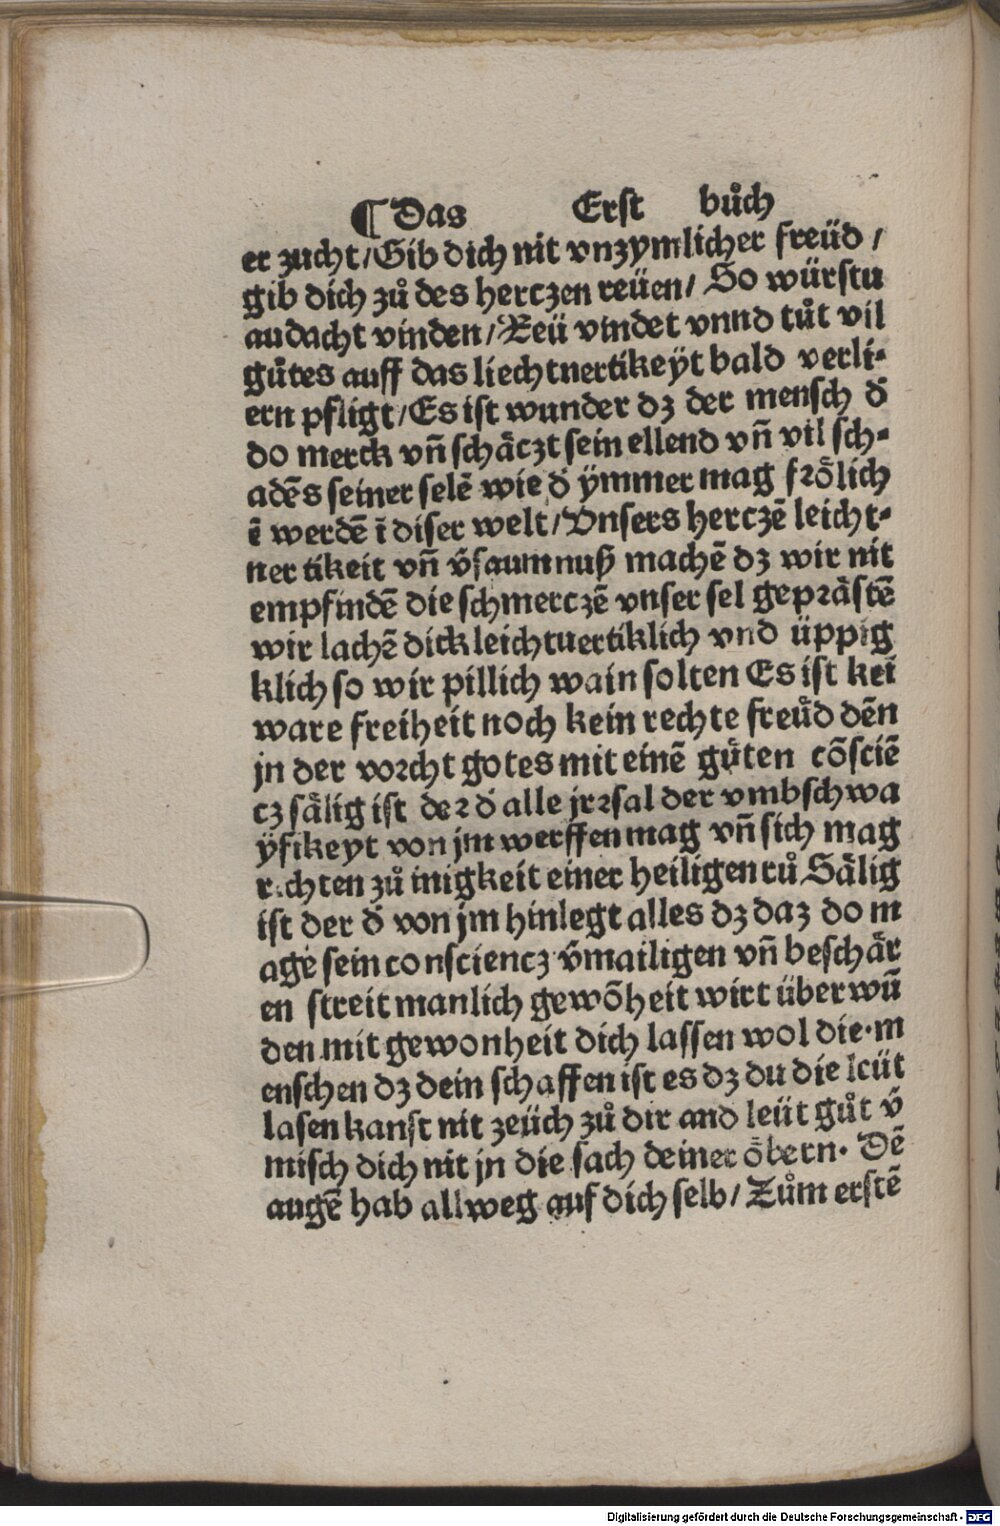 ¶ Das Erst bůch
er zucht/Gib dich nit vnzymlicher freüd/
gib dich zů des herczen reüen/ So würstu
audacht vinden/Reü vindet vnnd tůt vil
gůtes auff das liechtuertikeÿt bald verli⸗
ern pfligt/Es ist wunder dz der mensch d̛
do merck vñ schåczt sein ellend vñ vil sch⸗
adẽs seiner selẽ wie d̛ ÿmmer mag frȯlich
ẽ werdẽ ĩ diser welt/Vnsers herczẽ leicht⸗
uertikeit vñ v̛saumnuß machẽ dz wir nit
empfindẽ die schmerczẽ vnser sel gepråstẽ
wir lachẽ dick leichtuertiklich vnd üppig
klich so wir pillich wain solten Es ist keĩ
ware freiheit noch kein rechte freůd dẽn
jn der vorcht gotes mit einẽ gůten cõsciẽ
cz sålig ist der d̛ alle jrrsal der vmbschwa
ÿfikeyt von jm werffen mag vñ sich mag
richten zů inigkeit einer heiligen rů Sålig
ist der d̛ von jm hinlegt alles dz daz do m
age sein consciencz v̛mailigen vñ beschår
en streit manlich gewõheit wirt überwũ
den mit gewonheit dich lassen wol die·m
enschen dz dein schaffen ist es dz du die leüt
lasen kanst nit zeüch zů dir and leüt gůt v̛
misch dich nit jn die sach deiner öbern· Dẽ
augẽ hab allweg auf dich selb/Zům erstẽ
Digitalisierung gefördert durch die Deutsche Forschungsgemeinschaft - DFG